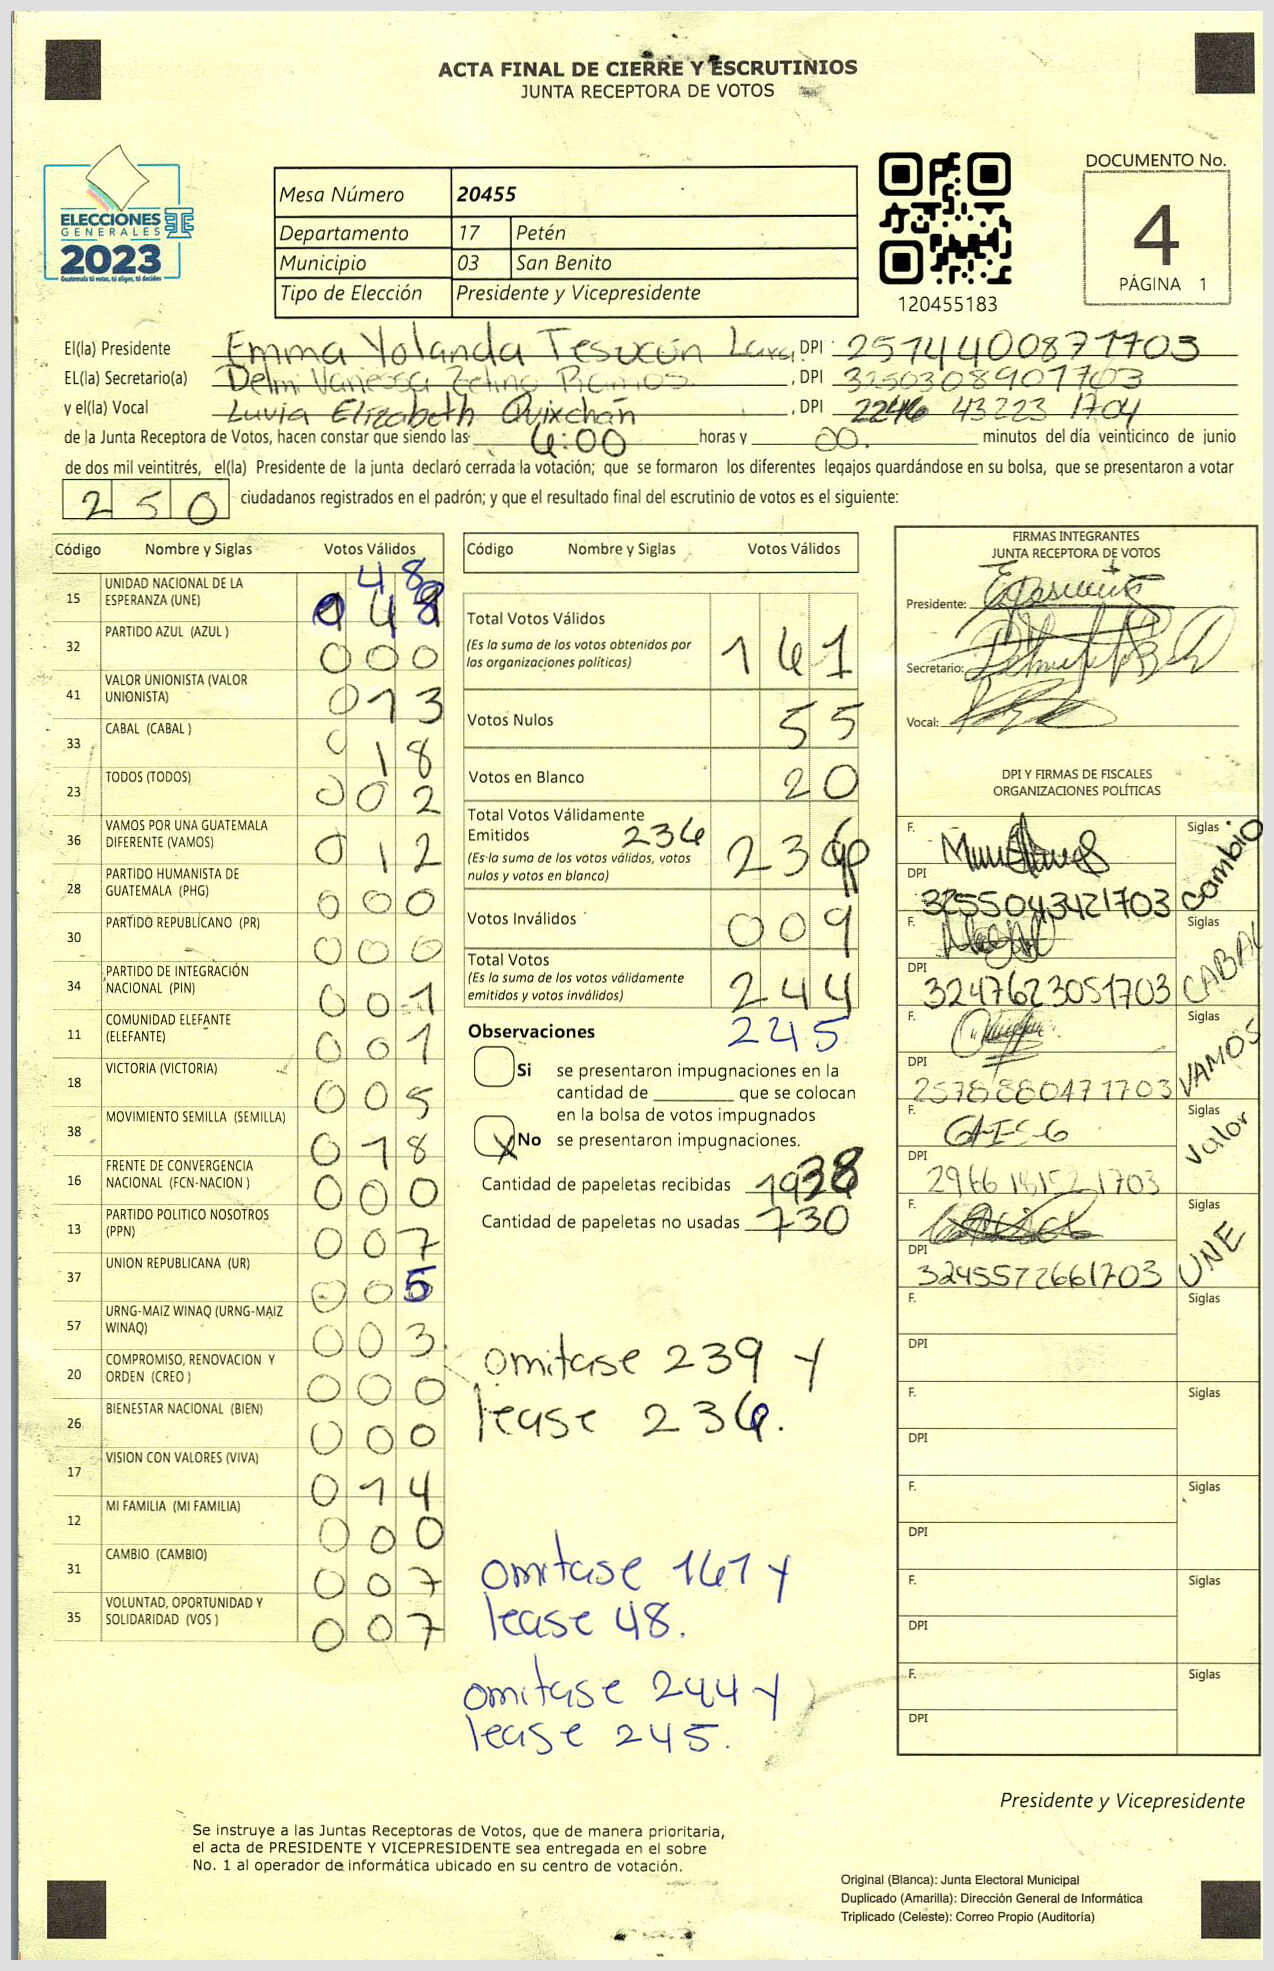 ACTA FINAL DE CIERRE Y ESCRUTINIOS
JUNTA RECEPTORA DE VOTOS
ELECCIONES
GENERALES
2023
Guatemala tú votas, tú eliges, tú decides
Mesa Número 20455
Departamento 17 Petén
Municipio 03 San Benito
Tipo de Elección Presidente y Vicepresidente
120455183
DOCUMENTO No.
4
PÁGINA 1
El(la) Presidente Emma Yolanda Tesucún Lara, DPI 2514400871703
EL(la) Secretario(a) Delmi Vanessa Zetino Ramos, DPI 3250308901703
y el(la) Vocal Luvia Elizabeth Quixchán, DPI 2246 43223 1704
de la Junta Receptora de Votos, hacen constar que siendo las 6:00 horas y 00. minutos del día veinticinco de junio
de dos mil veintitrés, el(la) Presidente de la junta declaró cerrada la votación; que se formaron los diferentes legajos guardándose en su bolsa, que se presentaron a votar
250 ciudadanos registrados en el padrón; y que el resultado final del escrutinio de votos es el siguiente:
Código Nombre y Siglas Votos Válidos
48
15 UNIDAD NACIONAL DE LA
ESPERANZA (UNE) 048
32 PARTIDO AZUL (AZUL ) 000
41 VALOR UNIONISTA (VALOR
UNIONISTA) 013
33 CABAL (CABAL ) 018
23 TODOS (TODOS) 002
36 VAMOS POR UNA GUATEMALA
DIFERENTE (VAMOS) 012
28 PARTIDO HUMANISTA DE
GUATEMALA (PHG) 000
30 PARTIDO REPUBLICANO (PR) 000
34 PARTIDO DE INTEGRACIÓN
NACIONAL (PIN) 001
11 COMUNIDAD ELEFANTE
(ELEFANTE) 001
18 VICTORIA (VICTORIA) 005
38 MOVIMIENTO SEMILLA (SEMILLA) 018
16 FRENTE DE CONVERGENCIA
NACIONAL (FCN-NACION ) 000
13 PARTIDO POLITICO NOSOTROS
(PPN) 007
37 UNION REPUBLICANA (UR) 005
57 URNG-MAIZ WINAQ (URNG-MAIZ
WINAQ) 003
20 COMPROMISO, RENOVACION Y
ORDEN (CREO ) 000
26 BIENESTAR NACIONAL (BIEN) 000
17 VISION CON VALORES (VIVA) 014
12 MI FAMILIA (MI FAMILIA) 000
31 CAMBIO (CAMBIO) 007
35 VOLUNTAD, OPORTUNIDAD Y
SOLIDARIDAD (VOS ) 007
Código Nombre y Siglas Votos Válidos
Total Votos Válidos
(Es la suma de los votos obtenidos por
las organizaciones políticas) 161
Votos Nulos 55
Votos en Blanco 20
Total Votos Válidamente
Emitidos 236 236
(Es la suma de los votos válidos, votos
nulos y votos en blanco)
Votos Inválidos 009
Total Votos
(Es la suma de los votos válidamente
emitidos y votos inválidos) 244
Observaciones 245
Si se presentaron impugnaciones en la
cantidad de ________ que se colocan
en la bolsa de votos impugnados
X No se presentaron impugnaciones.
Cantidad de papeletas recibidas
Cantidad de papeletas no usadas 730
omitase 239 y
lease 236.
omitase 161 y
lease 48.
omitase 244 y
lease 245.
FIRMAS INTEGRANTES
JUNTA RECEPTORA DE VOTOS
Presidente:
Secretario:
Vocal:
DPI Y FIRMAS DE FISCALES
ORGANIZACIONES POLÍTICAS
F. Siglas cambio
DPI 3255043421703
F. Siglas CABAL
DPI 3247623051703
F. Siglas VAMOS
DPI 2578880471703
F. Siglas Valor
DPI 2966181521703
F. Siglas UNE
DPI 3245572661703
F. Siglas
DPI
F. Siglas
DPI
F. Siglas
DPI
F. Siglas
DPI
F. Siglas
DPI
Presidente y Vicepresidente
Se instruye a las Juntas Receptoras de Votos, que de manera prioritaria,
el acta de PRESIDENTE Y VICEPRESIDENTE sea entregada en el sobre
No. 1 al operador de informática ubicado en su centro de votación.
Original (Blanca): Junta Electoral Municipal
Duplicado (Amarilla): Dirección General de Informática
Triplicado (Celeste): Correo Propio (Auditoría)